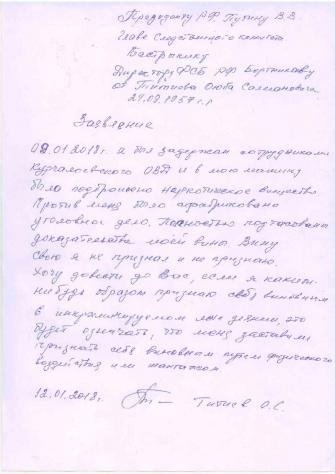 Президенту РФ Путину В.В.
Главе Следственного комитета
Бастрыкину
Директору ФСБ РФ Бортникову
от Титиева Оюба Салмановича
24.08.1957 г.р
Заявление
09.01.2018г. я был задержан сотрудниками
Курчалоевского ОВД и в мою машину
было подброшено наркотическое вещество.
Против меня было сфабриковано
уголовное дело. Полностью подтасованы
доказательства моей вины. Вину
свою я не признал и не признаю.
Хочу довести до Вас, если я каким-
нибудь образом признаю себя виновным
в инкриминируемом мне деянии, это
будет означать, что меня заставили
признать себя виновным путем физического
воздействия или шантажом.
12.01.2018г. Титиев О.С.